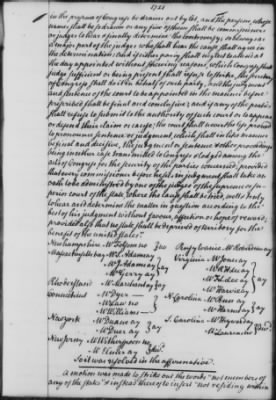 1721
in the presence of Congress be drawn out by lot, and the persons, whose
names shall be so drawn or any five of them shall be commissioners
or judges to hear & finally determine the controversy, so always as a
major part of the judges who shall hear the cause shall agree in
the determination; and if either party shall neglect to attend at
the day appointed without shewing reasons, which Congress shall
judge sufficient or being present shall refuse to strike, the
of Congress shall strike in behalf of such party, and the judgment
and sentence of the court to be appointed in the manner before
prescribed shall be final and conclusive; and if any of the parties
shall refuse to submit to the authority of such court or to appear
or defend their claim or cause, the court shall nevertheless proceed
to pronounce sentence or judgment, which shall in like manner
be final and decisive, the judgment or sentence & other proceedings
being in either case transmitted to Congress & lodged among the
acts of Congress for the security of the parties concerned, provided
that every commissioner before he sits in judgment shall take an
oath to be administered by one of the judges of the supreme or
court of the state, where the cause shall be tried, well & truly
to hear and determine the matter in question according to the
best of his judgment without favour, affection or hope of reward;
provided also that no state shall be deprived of territory for the
benefit of the united states."
Newhampshire Mr Folsom no
Massachusetts bay Mr S Adams ay
Mr J Adams ay
Mr Gerry ay
Rhodeisland Mr Marchant ay
Connecticut Mr Dyer
Mr Law no
Mr Williams
Newyork Mr Duane ay
Mr Duer ay
New Jersey Mr Witherspoon no
Pensylvania Mr Roberdeau ay
Virginia Mr Jones ay
Mr F L Lee ay
Mr R H Lee ay
Mr Harvie ay
N Carolina Mr Penn ay
Mr Harnett ay
S Carolina Mr Heyward ay
Mr Laurens no
So it was resolved in the affirmative.
A motion was made to strike out the words "not members of
any of the states" & instead thereof to insert "not residing within